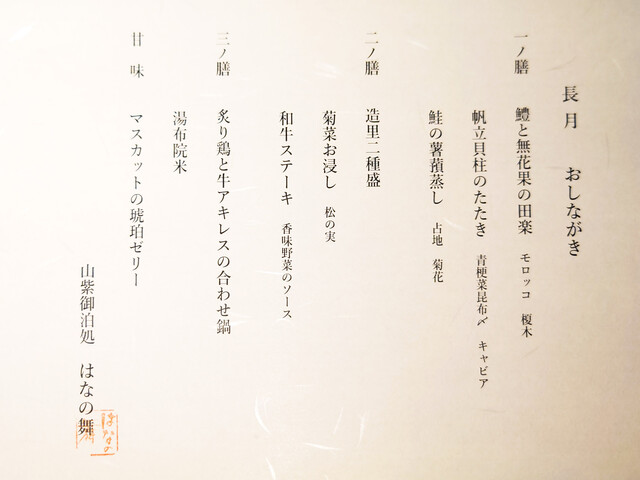 長月　おしながき
一ノ膳　鱧と無花果の田楽　モロッコ　榎木
帆立貝柱のたたき　青梗菜昆布〆　キャビア
鮭の薯蕷蒸し　占地　菊花
二ノ膳　造里二種盛
菊菜お浸し　松の実
和牛ステーキ　香味野菜のソース
三ノ膳　炙り鶏と牛アキレスの合わせ鍋
湯布院米
甘味　マスカットの琥珀ゼリー
山紫御泊処　はなの舞
はなの